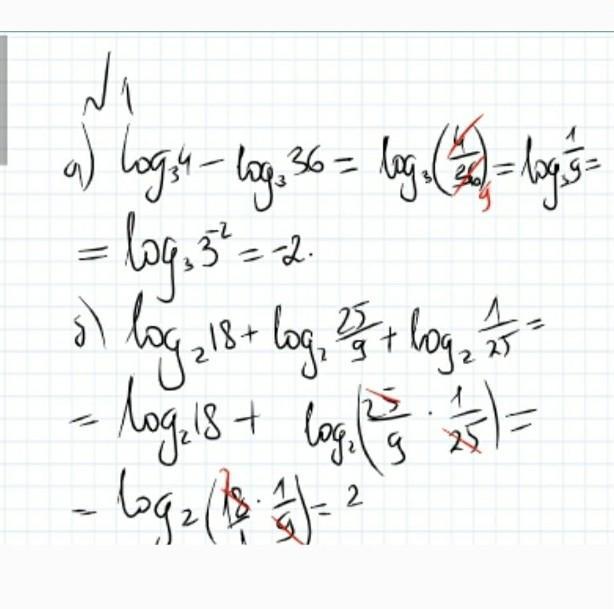 №1
а) log₃4 − log₃36 = log₃(4/36) 9 = log₃1/9 =
= log₃3⁻² = -2.
б) log₂18 + log₂25/9 + log₂1/25 =
= log₂18 + log₂(25/9 · 1/25) =
= log₂(18/1 · 1/9) = 2